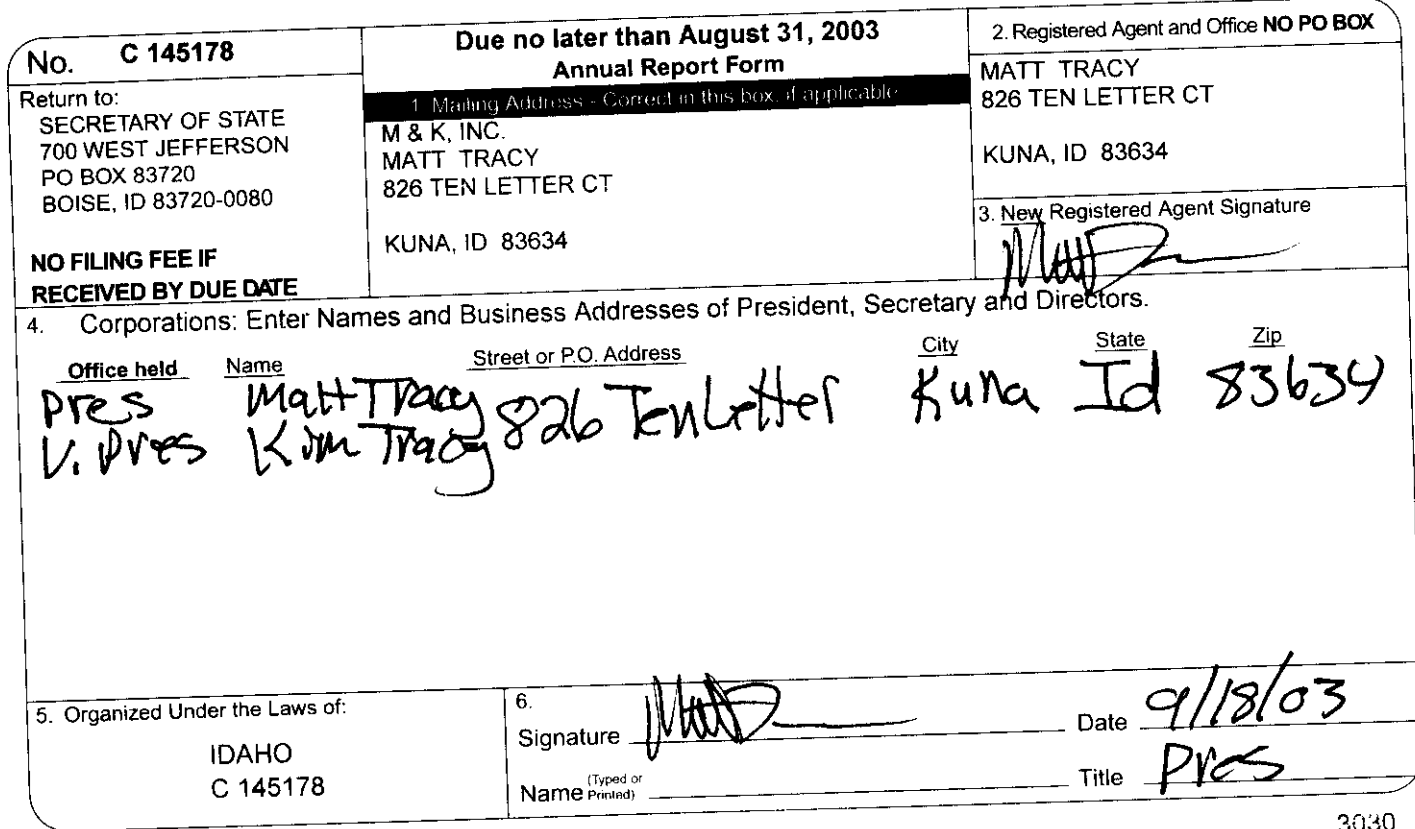 No. C 145178
Return to:
SECRETARY OF STATE
700 WEST JEFFERSON
PO BOX 83720
BOISE, ID 83720-0080
NO FILING FEE IF
RECEIVED BY DUE DATE
Due no later than August 31, 2003
Annual Report Form
1. Mailing Address - Correct in this box, if applicable
M & K, INC.
MATT TRACY
826 TEN LETTER CT
KUNA, ID 83634
2. Registered Agent and Office NO PO BOX
MATT TRACY
826 TEN LETTER CT
KUNA, ID 83634
3. New Registered Agent Signature
4. Corporations: Enter Names and Business Addresses of President, Secretary and Directors.
Office held Name Street or P.O. Address City State Zip
Pres Matt Tracy 826 Ten Letter Kuna Id 83634
V. Pres Kim Tracy
5. Organized Under the Laws of:
IDAHO
C 145178
6.
Signature Date 9/18/03
Name (Typed or Printed) Title Pres
3030